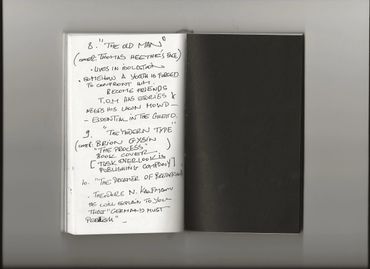 8. "THE OLD MAN"
(COVER: THOMAS
• LIVES IN ISOLATION
• SOMEHOW A YOUTH IS FORCED
TO CONFRONT HIM
BECOME FRIENDS
T.O.M HAS STORIES &
NEEDS HIS LAWN MOWD —
— ESSENTIAL IN THE GHETTO.
9. "THE MODERN TYPE"
(COVER: BRION GYSIN
"THE PROCESS"
BOOK COVER)
[TUSK/OVERLOOK IS
PUBLISHING COMPANY]
10. "THE DREAMER OF
• THEODORE N. KAUFMANN
HE WILL EXPLAIN TO YOU
THAT "GERMANY MUST
PERISH"